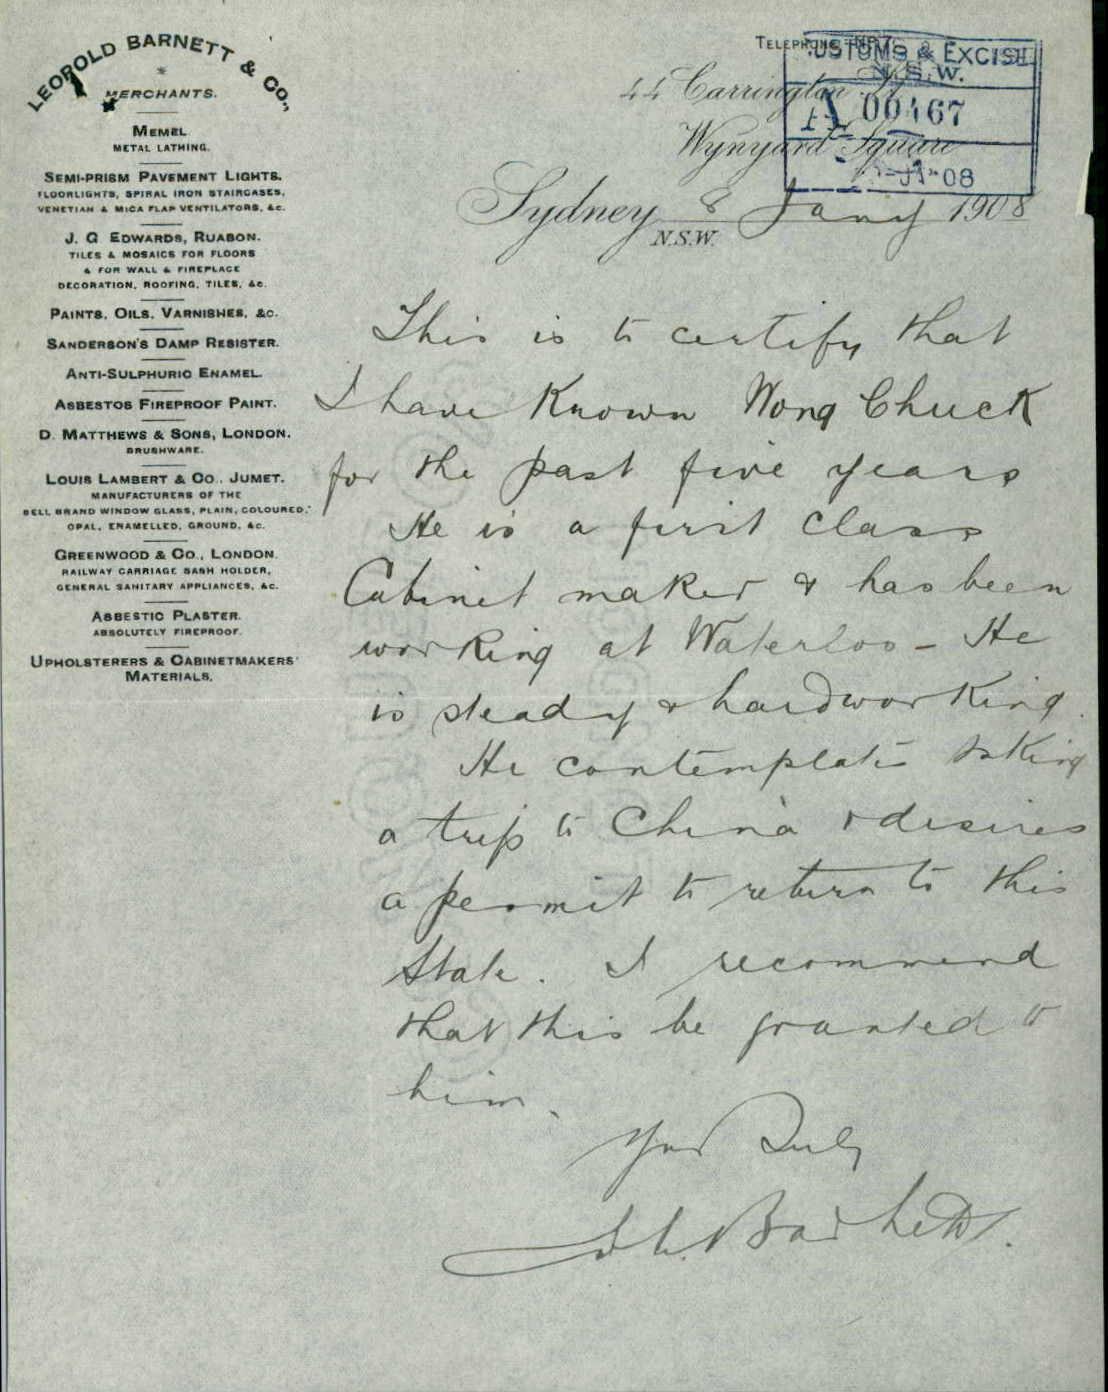 LEOPOLD BARNETT & CO.,
MERCHANTS.
MEMEL
METAL LATHING.
SEMI-PRISM PAVEMENT LIGHTS.
FLOORLIGHTS, SPIRAL IRON STAIRCASES,
VENETIAN & MICA FLAP VENTILATORS, &c.
J. G. EDWARDS, RUABON.
TILES & MOSAICS FOR FLOORS
& FOR WALL & FIREPLACE
DECORATION, ROOFING, TILES, &c.
PAINTS, OILS, VARNISHES, &c.
SANDERSON'S DAMP RESISTER.
ANTI-SULPHURIC ENAMEL.
ASBESTOS FIREPROOF PAINT.
D. MATTHEWS & SONS, LONDON.
BRUSHWARE.
LOUIS LAMBERT & CO., JUMET.
MANUFACTURERS OF THE
BELL BRAND WINDOW GLASS, PLAIN, COLOURED,
OPAL, ENAMELLED, GROUND, &c.
GREENWOOD & CO., LONDON.
RAILWAY CARRIAGE SASH HOLDER,
GENERAL SANITARY APPLIANCES, &c.
ASBESTIC PLASTER.
ABSOLUTELY FIREPROOF.
UPHOLSTERERS & CABINETMAKERS'
MATERIALS.
TELEPHONE
CUSTOMS & EXCISE
N.S.W.
A 00467
08
44 Carrington St
Wynyard Square
Sydney 8 Jany 1908
N.S.W.
This is to certify that
I have Known Wong Chuck
for the past five years
He is a first class
Cabinet maker & has been
working at Waterloo - He
is steady & hardworking.
He contemplates taking
a trip to China & desires
a permit to return to this
State. I recommend
that this be granted to
him.
Yrs Truly
Barnett